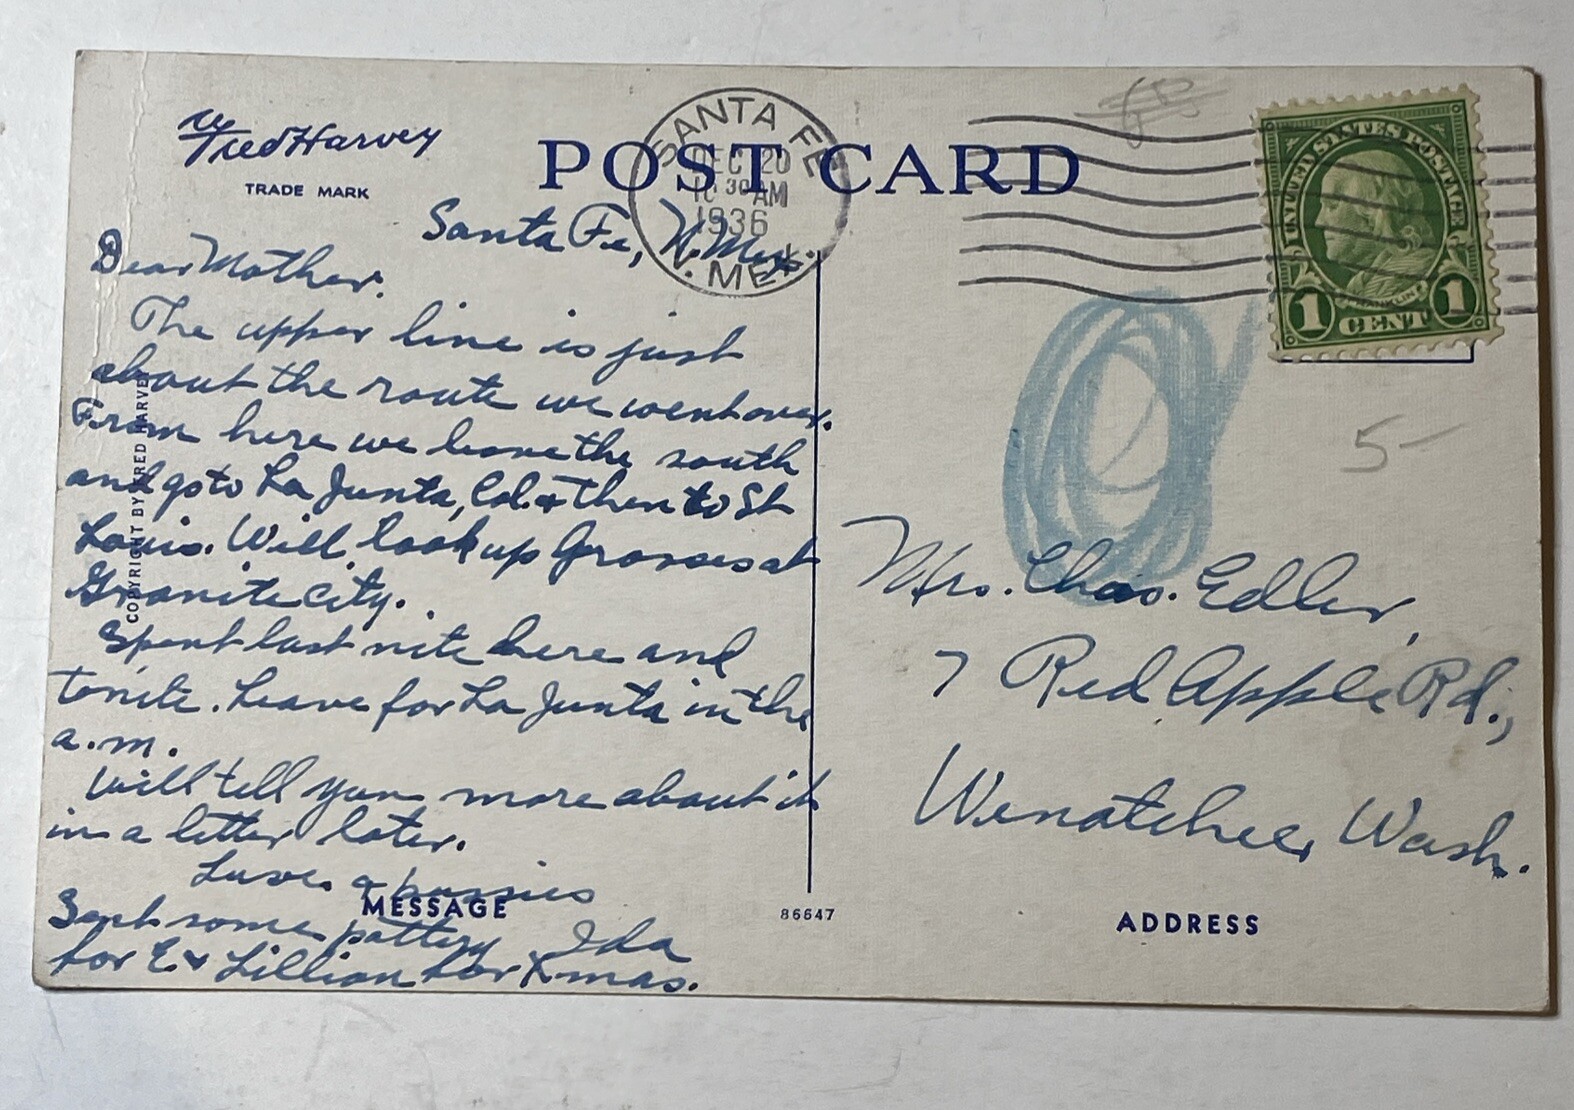 Fred Harvey
TRADE MARK
POST CARD
SANTA FE
DEC 20
10 30 AM
1936
N. MEX.
UNITED STATES POSTAGE
FRANKLIN
1 CENT 1
Santa Fe, N. Mex.
Dear Mother:
The upper line is just
about the route we went over.
From here we leave the south
and go to La Junta, Col. & then to St
Louis. Will look up Grosses at
Granite City.
Spent last nite here and
tonite. Leave for La Junta in the
a.m.
Will tell you more about it
in a letter later.
Love &
Ida
Sent some pottery
for E. & Lillian for Xmas.
COPYRIGHT BY FRED HARVEY
MESSAGE
86647
5-
Mrs. Chas. Edler,
7 Red Apple Rd.,
Wenatchee, Wash.
ADDRESS